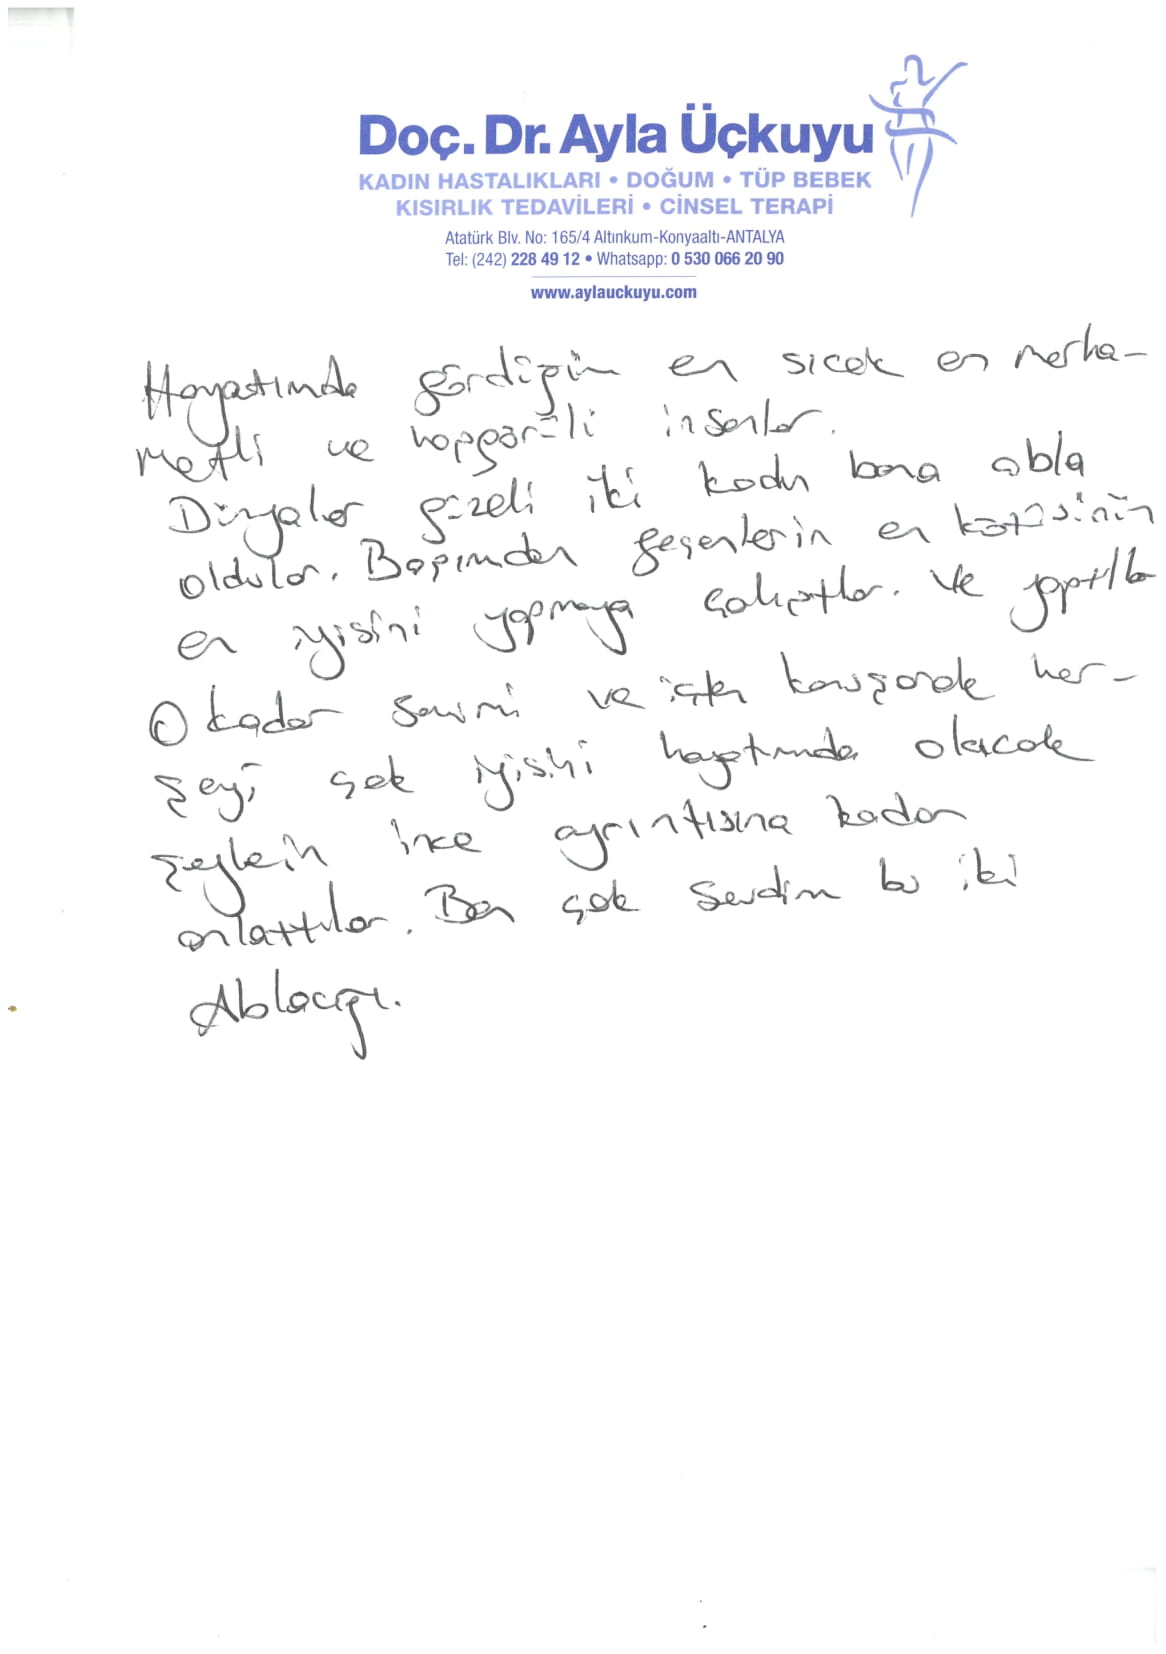 Doç. Dr. Ayla Üçkuyu
KADIN HASTALIKLARI • DOĞUM • TÜP BEBEK
KISIRLIK TEDAVİLERİ • CİNSEL TERAPİ
Atatürk Blv. No: 165/4 Altınkum-Konyaaltı-ANTALYA
Tel: (242) 228 49 12 • Whatsapp: 0 530 066 20 90
www.aylauckuyu.com
Hayatımda gördüğüm en sıcak en merha-
metli ve hoşgörülü insanlar.
Dünyalar güzeli iki kadın bana abla
oldular. Başımdan geçenlerin en kötüsünün
en iyisini yapmaya çalıştılar. Ve yaptılar
O kadar samimi ve içten konuşarak her-
şeyi çok iyisini hayatımda olacak
şeylerin ince ayrıntısına kadar
anlattılar. Ben çok sevdim bu iki
Ablacığı.